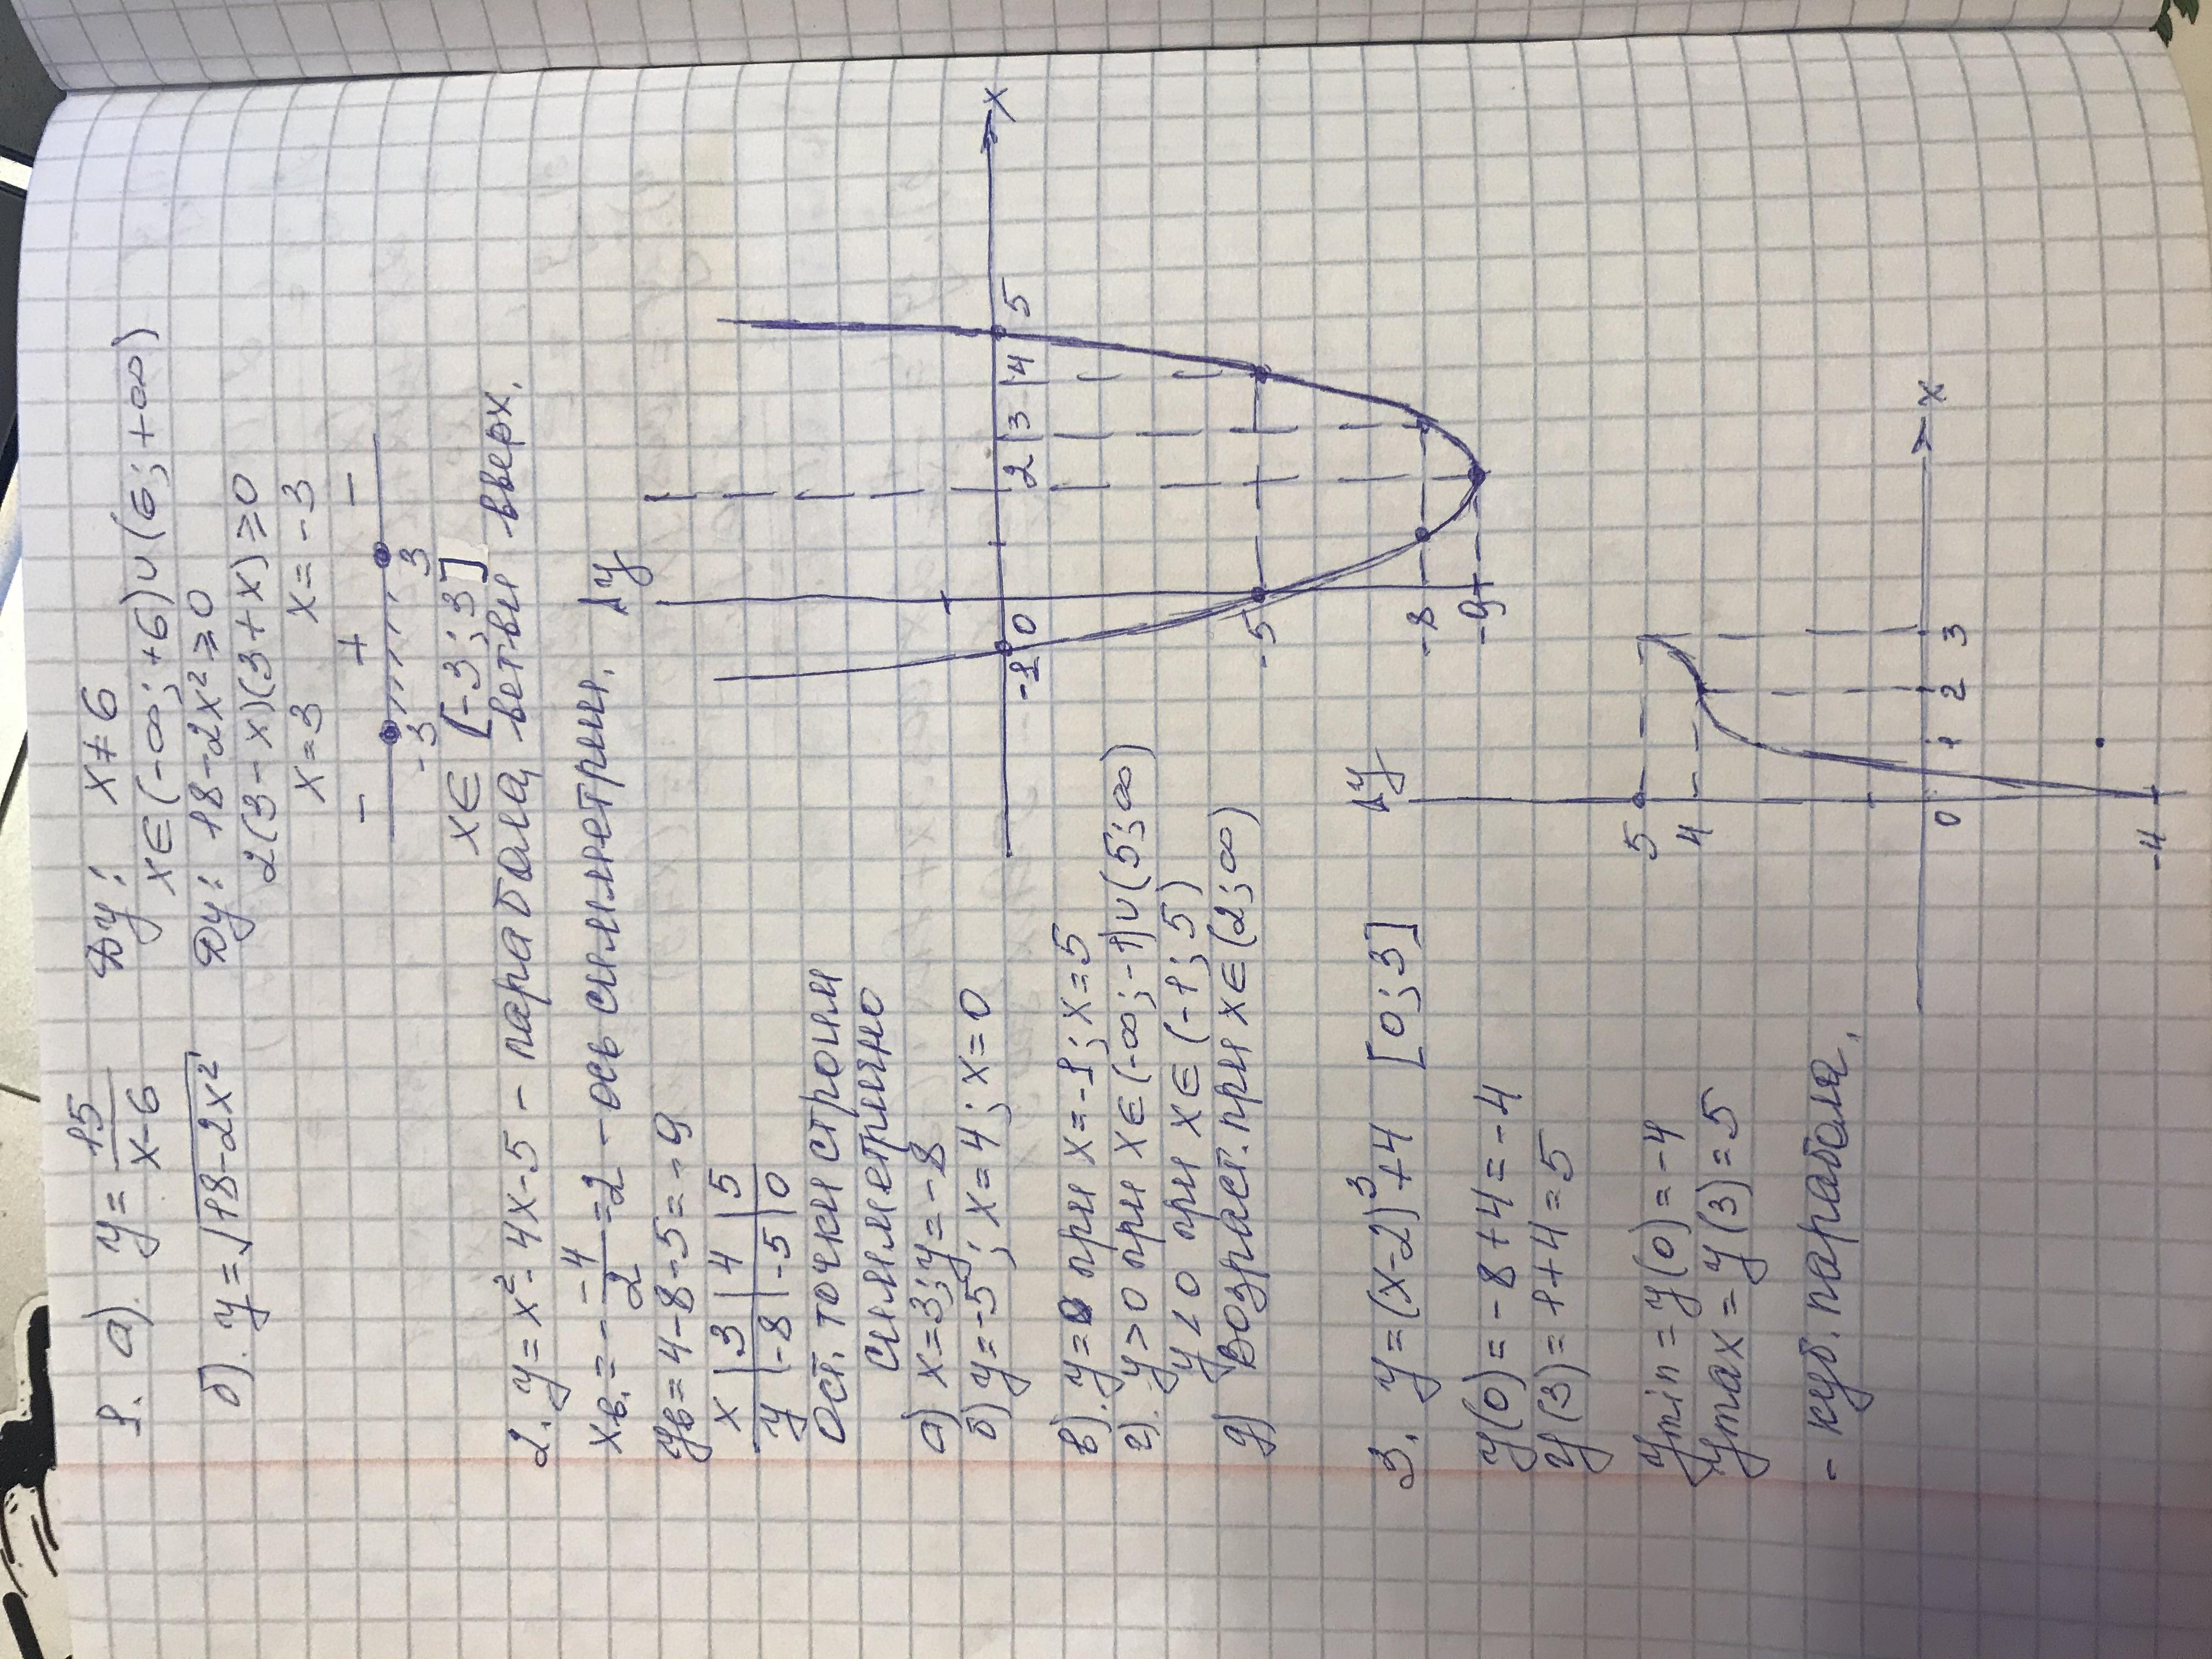 1. а). y = 15/(x-6) Ду: x≠6
x∈(-∞;+6)∪(6;+∞)
б). y=√(18-2x²) Ду: 18-2x²≥0
2(3-x)(3+x)≥0
x=3 x=-3
- + -
-3 3
x∈[-3;3]
2. y=x²-4x-5 - парабола, ветви вверх.
xв.=- -4/2 =2 - ось симметрии.
yв=4-8-5=-9
x | 3 | 4 | 5
y | -8 | -5 | 0
Ост. точки строим
симметрично
а) x=3; y=-8
б) y=-5; x=4; x=0
в). y=0 при x=-1; x=5
г). y>0 при x∈(-∞;-1)∪(5;∞)
y<0 при x∈(-1;5)
д) возраст. при x∈(2;∞)
y
x
-1 0 2 3 4 5
-5
-8
-9
3. y=(x-2)³+4 [0;3]
y(0)=-8+4=-4
y(3)=1+4=5
ymin=y(0)=-4
ymax=y(3)=5
- куб. парабола.
y
5
4
0 1 2 3 x
-4